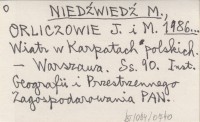 NIEDŹWIEDŹ M.,
ORLICZOWIE J. i M. 1986...
Wiatr w Karpatach polskich.
– Warszawa. Ss. 90. Inst.
Geografii i Przestrzennego
Zagospodarowania PAN.